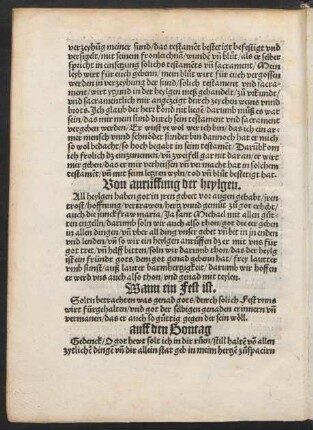 verzeyhung meiner sund/das testamēt bestetigt befestigt vnd
versigelt/mit seinem fronleichnā/wunde vn̄ blůt/als er selber
spricht in einsetzung solichs testamēts vn̄ sacrament/Mein
leyb wirt für euch gebenn/mein blůt wirt für euch vergossen
werden in verzeyhung der sund/solich testament vnd sacra-
ment/wirt yetzund in der heylgen meß gehandelt/zů vrkundt/
vnd sacramentlich mir angezeigt durch zeychen weins vnnd
brots. Ich glaub der bert könd nit liegē/darumb můß es war
sein/das mir mein sund durch sein testament vnd sacrament
vergeben werden/Er weißt ye wol wer ich bin/das ich ein ar-
mer mensch vnnd schnöder sunder bin dannoch hat er mich
so wol bedacht/so hoch begabt in seim testamēt/Darūb kom
ich frolich dz einzunemen/vn̄ zweifel gar nit daran/er wirt
mir geben/das er mir verheissen vnd vermacht hat in solchem
testamēt/vn̄ mit seim letzten wyln/tod vn̄ blůt bestetigt hat.
Von anrüffung der heylgen.
All heylgen haben got in jren gebet vor augen gehabt/jren
trost/hoffnung/vertrawen/hertz vnnd gemüt zů got erhebt/
auch die junckfraw maria/Ja sant Michael mit allen gůt-
ten engeln/darumb soln wir auch also thon/got die eer geben
in allen dingen/vn̄ vber all ding vnser gebet vn̄ bit in jn enden
vnd lenden/vn̄ so wir ein heylgen anrüffen dz er mit vns für
got tret/vn̄ hülff bitten/soln wir darumb thon/das der heylg
ist ein fründt gots/dem got genad gebenn hat/frey lautter
vnb sunst/auß lauter barmhertzigkeit/darumb wir hoffen
er werd vns auch also thon/vnd genad mit teylen.
Wann ein Fest ist.
Soltu betrachten was genad gots/durch solich Fest vnns
wirt fürgehalten/vnd got der selbigen genaden erinnern vn̄
vermanen/das er auch so gůttig gegen dir sein wöll.
auff den Sontag
Gedenck/O got hewt solt ich in dir růen/still haltē võ allen
zytlichē dingē vn̄ dir allein stat geb in mein hertzē zůspaciern